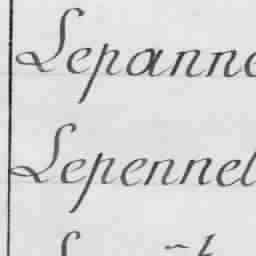 Lepanne
Lepennel